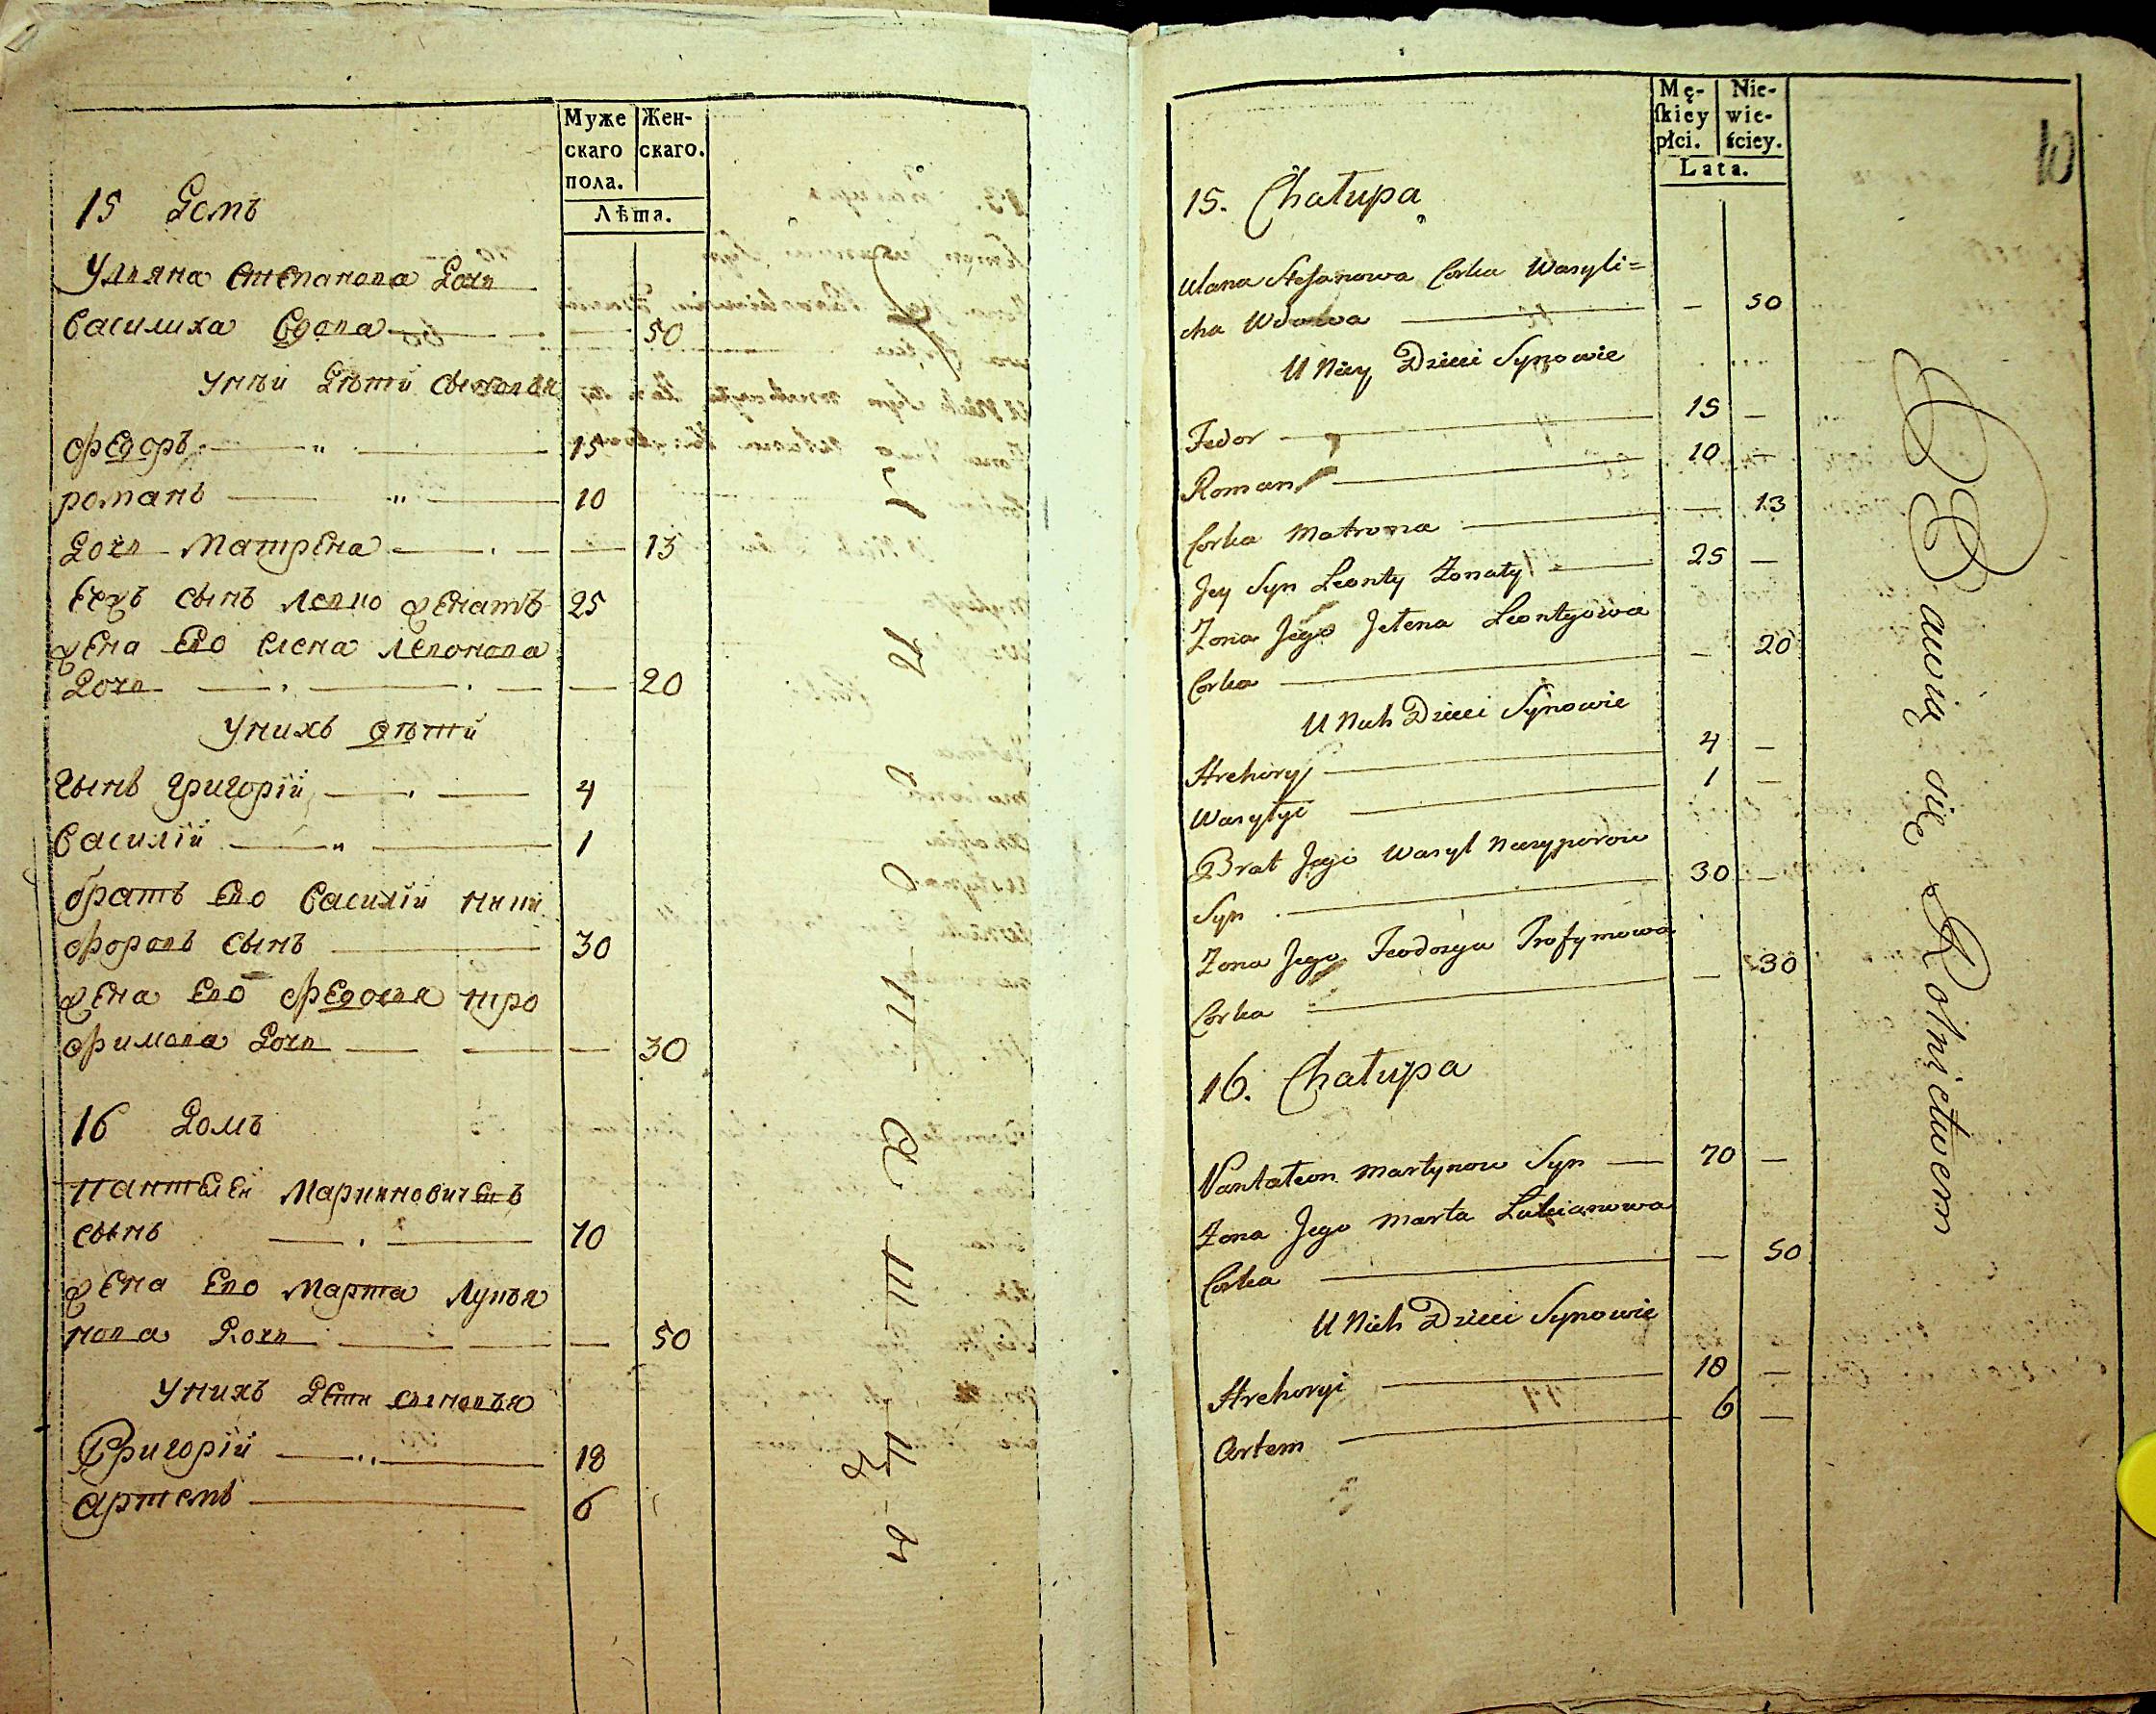 Муже
скаго
пола.
Жен-
скаго.
Лѣта.
15 Домъ
Уляна Степанова Дочь
Василиха Вдова 50
У ней Дѣти Сыновья
Федоръ 15
романъ 10
Дочь Матрена 13
Еехъ сынъ Левко женатъ 25
жена Ево Елена Левонова
Дочь 20
У нихъ дѣти
Сынъ григорiй 4
Василiй 1
братъ Ево Василiй
форовъ сынъ 30
жена Ево Федосья тро
фимова Дочь 30
16 Домъ
Пантелей
сынъ 70
жена Ево Марта Лукья
нова Дочь 50
У нихъ Дети сыновья
Григорiй 18
Артемъ 6
Mę-
ſkiey
płci.
Nie-
wie-
ściey.
Lata.
10
15. Chałupa
Ulana Stefanowa Corka Wasyli=
cha Wdowa — 50
U Niey Dzieci Synowie
Fedor 15 —
Roman 10 —
Corka Matrona — 13
Jey Syn Leonty Żonaty 25 —
Żona Jego Jełena Leontyowa
Corka — 20
U Nich Dzieci Synowie
Hrehory 4 —
Wasylyi 1 —
Brat Jego Wasyl Neczyporow
Syn 30 —
Żona Jego Feodosya Trofymowa
Corka — 30
16. Chałupa
Pantaleon Martynow Syn 70 —
Żona Jego Marta Łukianowa
Corka — 50
U Nich Dzieci Synowie
Hrehoryi 18 —
Artem 6 —
Bawią się Rolnictwem